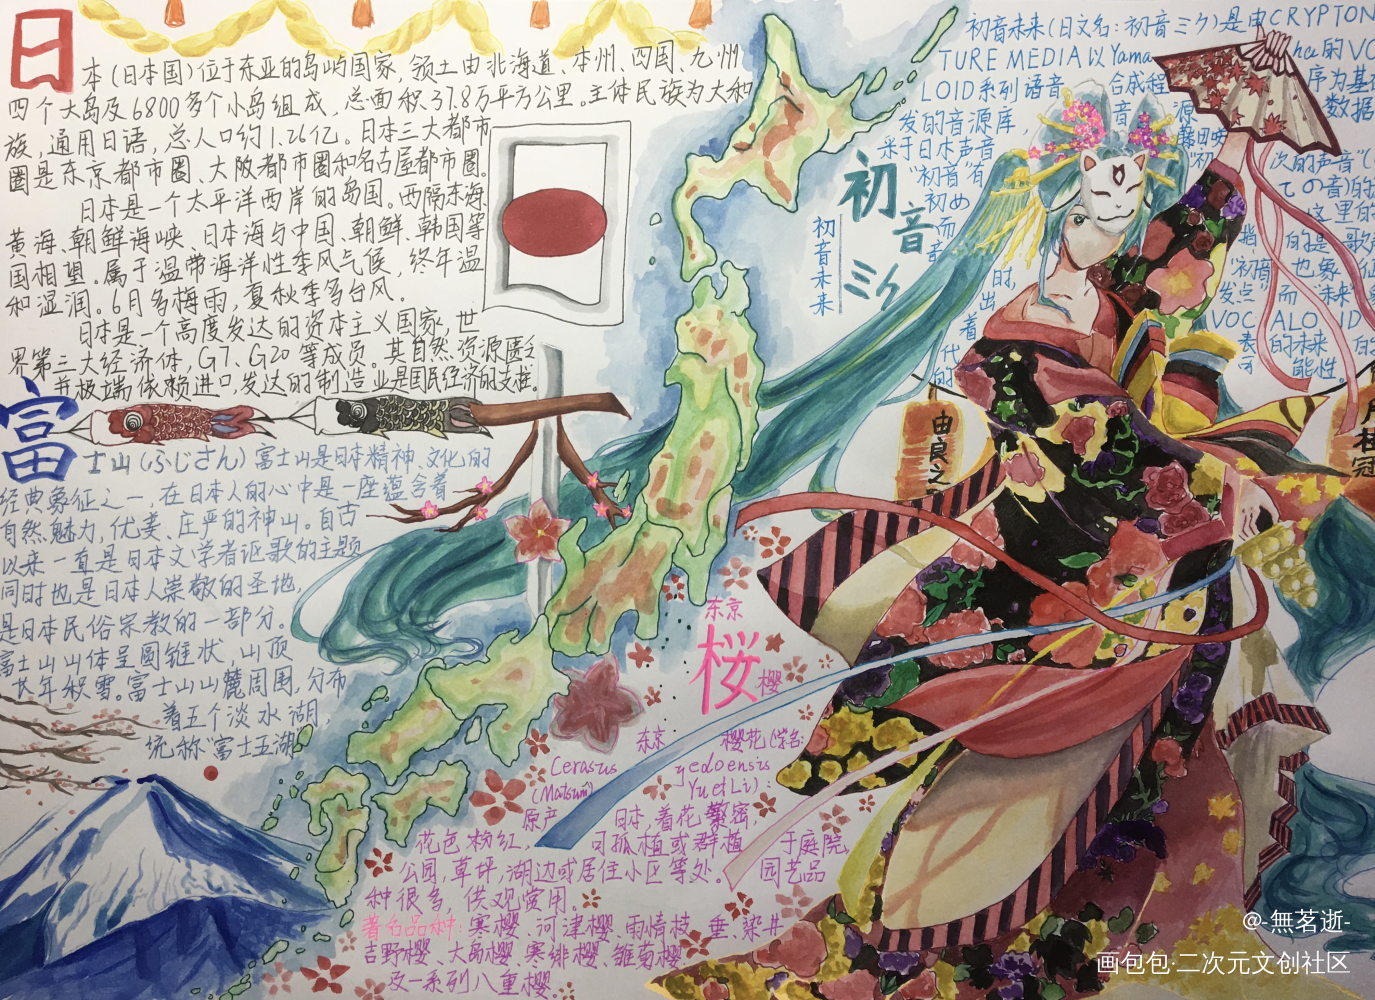 日本(日本国)位于东亚的岛屿国家,领土由北海道、本州、四国、九州
四个大岛及6800多个小岛组成,总面积37.8万平方公里。主体民族为大和
族,通用日语,总人口约1.26亿。日本三大都市
圈是东京都市圈、大阪都市圈和名古屋都市圈。
日本是一个太平洋西岸的岛国。西隔东海、
黄海、朝鲜海峡、日本海与中国、朝鲜、韩国等
国相望。属于温带海洋性季风气候,终年温
和湿润。6月多梅雨,夏秋季多台风。
日本是一个高度发达的资本主义国家,世
界第三大经济体,G7、G20等成员。其自然资源匮乏
并极端依赖进口,发达的制造业是国民经济的支柱。
富士山(ふじさん)富士山是日本精神、文化的
经典象征之一,在日本人的心中是一座蕴含着
自然魅力,优美、庄严的神山。自古
以来一直是日本文学者讴歌的主题
同时也是日本人崇敬的圣地,
是日本民俗宗教的一部分。
富士山山体呈圆锥状,山顶
长年积雪。富士山山麓周围,分布
着五个淡水湖,
统称“富士五湖”
初音未来(日文名:初音ミク)是由CRYPTON
TURE MEDIA以Yama
ha的VO
LOID系列语音 合成程 序为基
发的音源库, 音 源 数据
采于日本声音 藤田咲
“初音”有 “初 次的声音”(
初め ての音)的
而 这里的
音 指 的是 歌声
时, “初音” 也象 征
出 发点” 而 “未来”
着 VOC ALO ID
代 表 的未来 的
的 可 能性。
初音ミク
初音未来
由良之
桂冠
东京
桜
樱
东京 樱花(学名:
Cerasus yedoensis
(Matsum) Yu et Li):
原产 日本,着花繁密,
花色粉红, 可孤植或群植 于庭院,
公园,草坪,湖边或居住小区等处。 园艺品
种很多,供观赏用.
著名品种:寒樱、河津樱、雨情枝 垂、染井
吉野樱、大岛樱、寒绯樱、雏菊樱
及一系列八重樱
@-無茗逝-
画包包·二次元文创社区